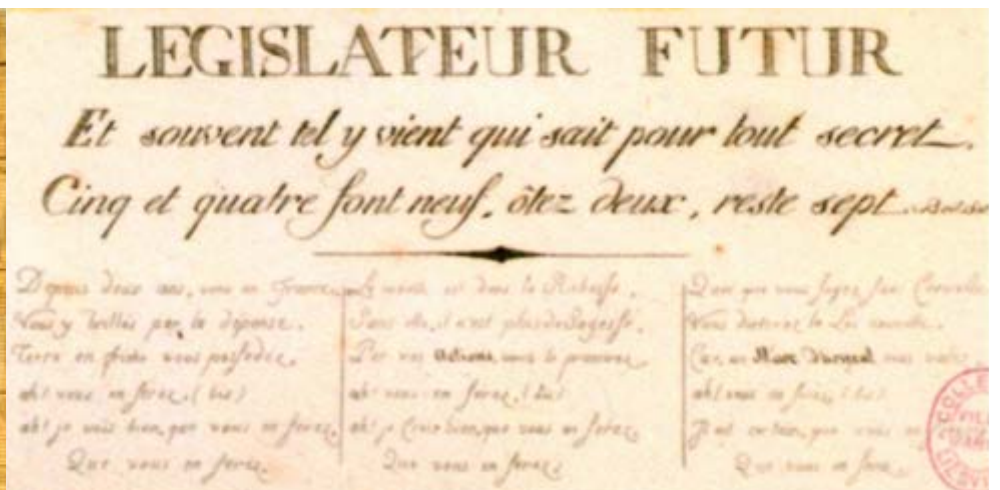 LEGISLATEUR FUTUR
Et souvent tel y vient qui sait pour tout secret.
Cinq et quatre font neuf, ôtez deux, reste sept.
Depuis deux ans, vous en France
Vous y brillez par la dépense.
Terre en friche vous possedez.
ah! vous en ferez. (bis)
ah! je vois bien, que vous en ferez.
Que vous en ferez.
Le mérite est dans la Richesse.
Sans elle, il n'est plus de Sagesse.
Par vos actions, vous le prouvez
ah! vous en ferez. (bis)
ah! je crois bien, que vous en ferez.
Que vous en ferez.
Quoi que vous soyez sans Cervelle
Vous la Loi nouvelle.
Car, un Marc d'argent vous
ah! vous en ferez. (bis)
Il est certain, que vous en
Que vous en